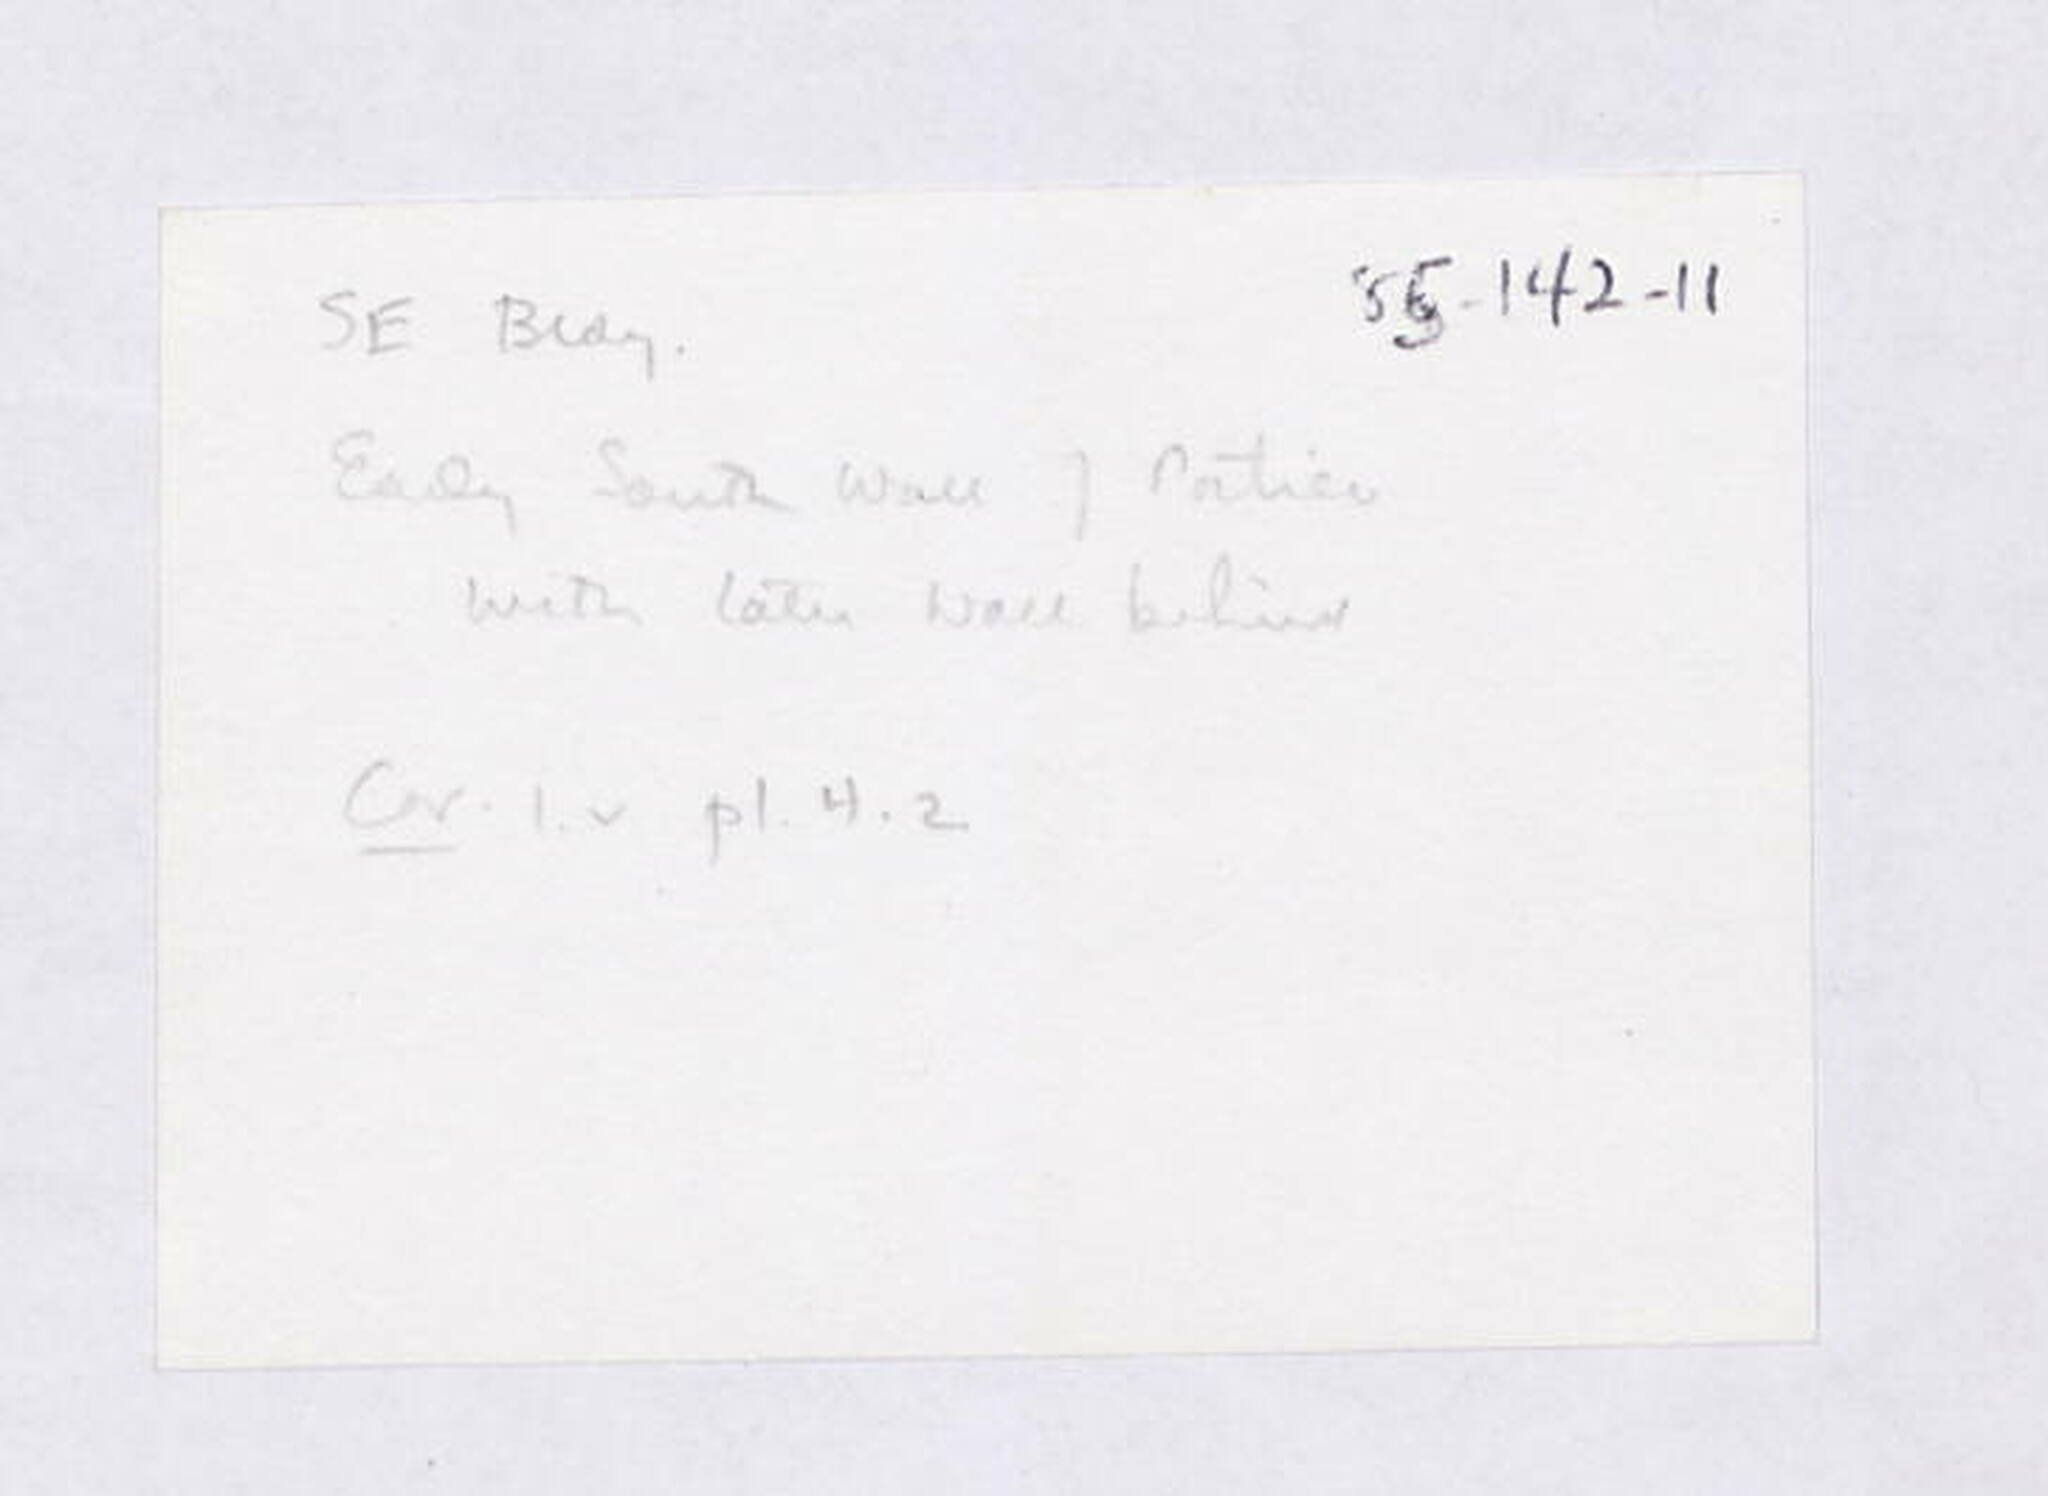 '55-142-11
SE Bldg.
Early South Wall of Portico
with later wall behind
Cor. I.v pl. 4.2